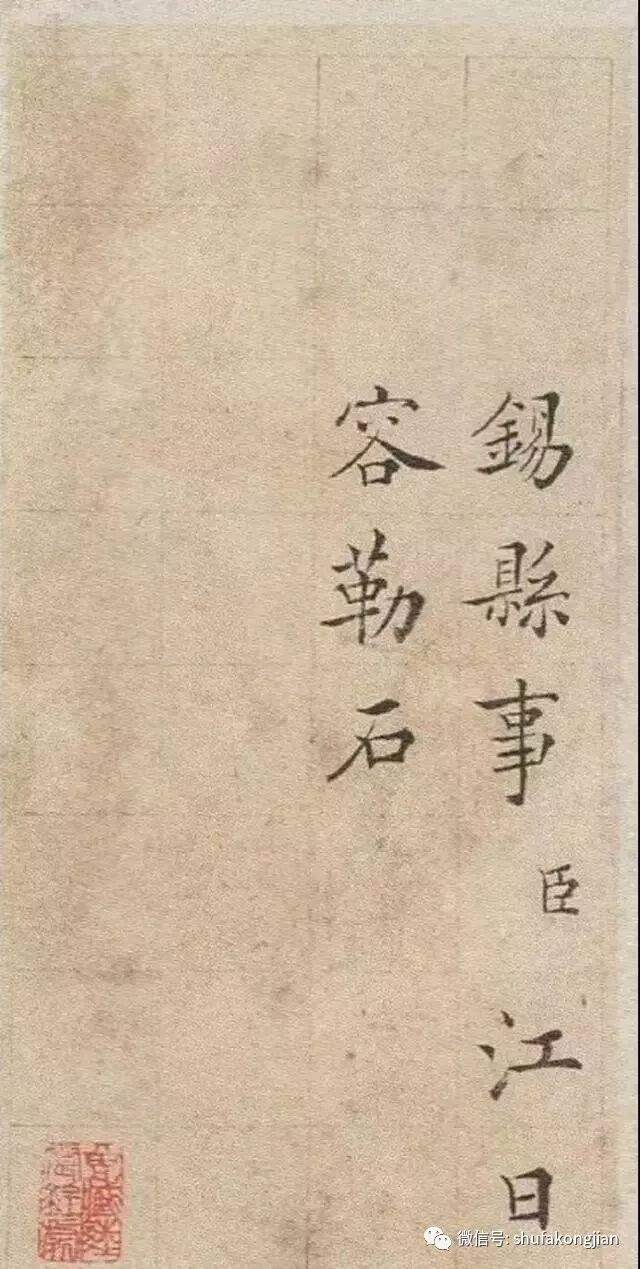 錫縣事臣江日
容勒石
微信号: shufakongjian